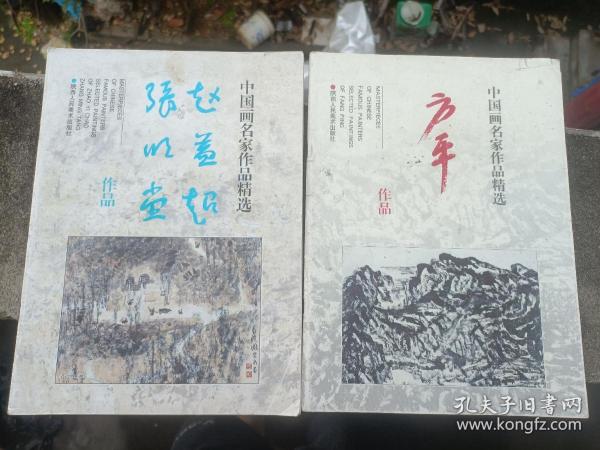 中国画名家作品精选
赵益超
張明堂
作品
MASTERPIECES
OF CHINESE
FAMOUS PAINTERS
SELECTED PAINTINGS
OF ZHAO YI CHAO
ZHANG MING TANG
陕西人民美术出版社
中国画名家作品精选
方平
作品
MASTERPIECES
OF CHINESE
FAMOUS PAINTERS
SELECTED PAINTINGS
OF FANG PING
陕西人民美术出版社
孔夫子旧书网
www.kongfz.com